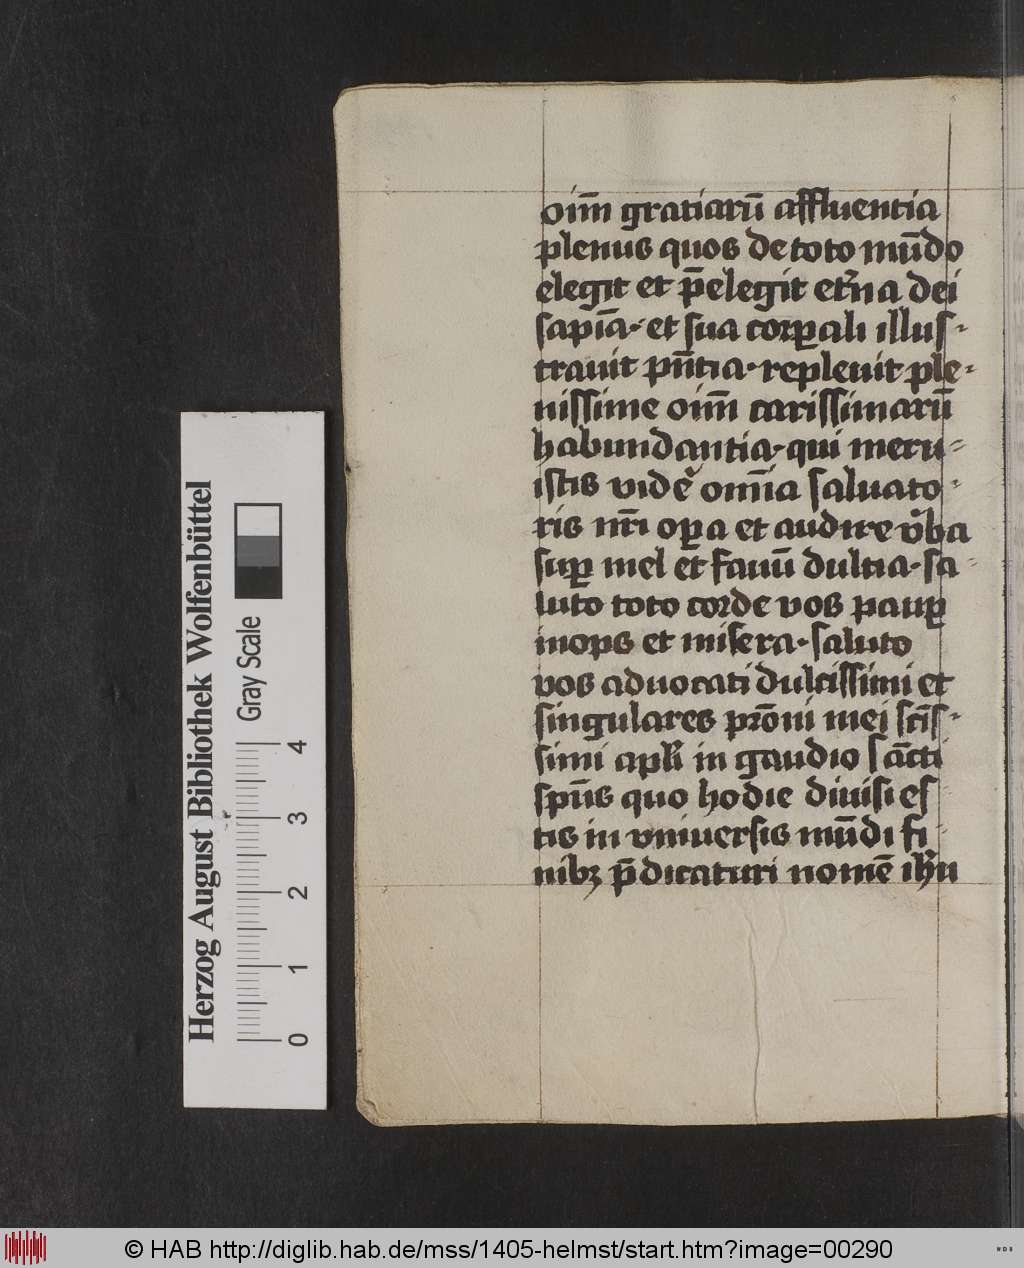 oim̄ gratiarū affluentia
plenus quos de toto mūdo
elegit et p̄elegit et͛na dei
sapīa· et sua corꝑali illus-
trauit pn̄tia· repleuit ple-
nissime oim̄ carissimarū
habundantia· qui meru-
istis videē om̄ia saluato-
ris nr̄i oꝑa et audire v͛ba
suꝑ mel et fauū dulcia· sa-
luto toto corde vos pauꝑ
inops et misera· saluto
vos aduocati dulcissimi et
singulares pr̄oni mei sc̄is-
simi apl̄i in gaudio sācti
spūs quo hodie diuisi es-
tis in vniuersis mūdi fi-
nibꝫ p̄dicaturi nomē ih̄u
Herzog August Bibliothek Wolfenbüttel
Gray Scale
0 1 2 3 4
© HAB http://diglib.hab.de/mss/1405-helmst/start.htm?image=00290